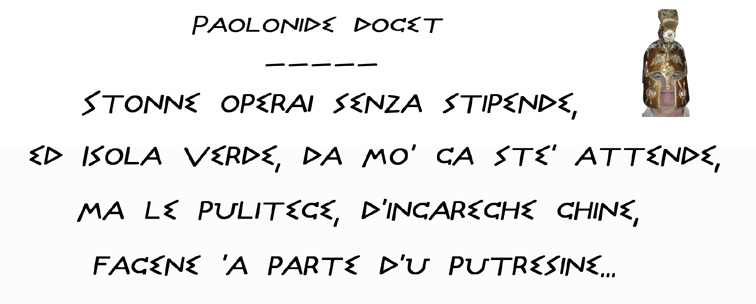 PAOLONIDE DOCET
–––––
STONNE OPERAI SENZA STIPENDE,
ED ISOLA VERDE, DA MO' CA STE' ATTENDE,
MA LE PULITECE, D'INCARECHE CHINE,
FACENE 'A PARTE D'U PUTRESINE...